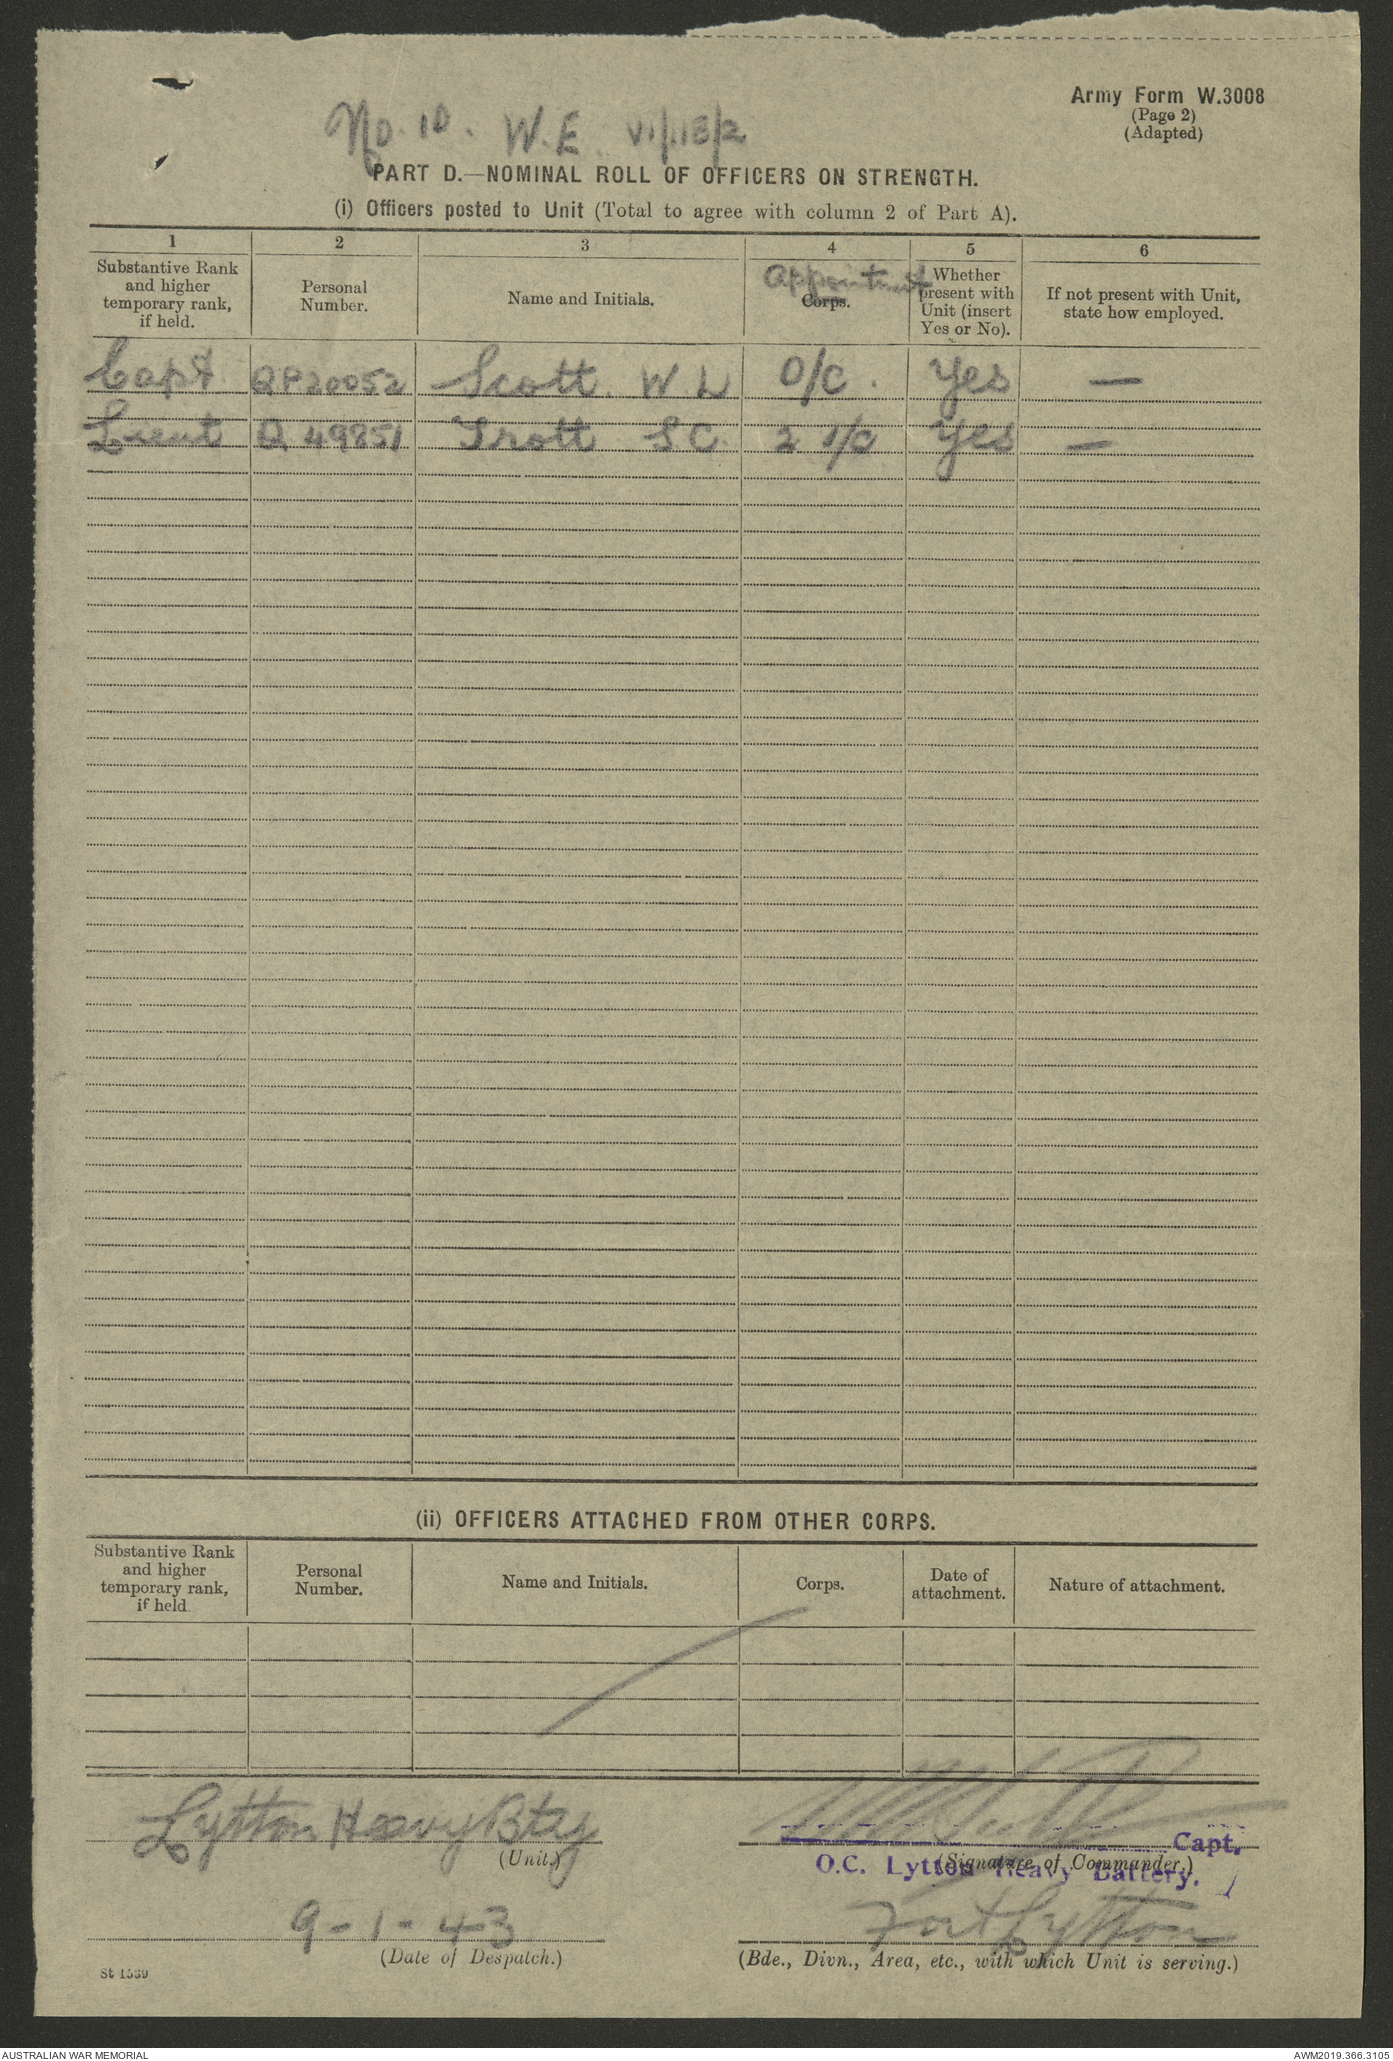 Army Form W.3008
(Page 2)
(Adapted)
No. 10. W.E. VI/1B/2
PART D.—NOMINAL ROLL OF OFFICERS ON STRENGTH.
(i) Officers posted to Unit (Total to agree with column 2 of Part A).
1 2 3 4 5 6
Substantive Rank and higher temporary rank, if held. Personal Number. Name and Initials. Appointment Corps. Whether present with Unit (insert Yes or No). If not present with Unit, state how employed.
Capt QP20052 Scott. W L O/C. Yes —
Lieut Q 49851 Trott S C. 2 I/C Yes —
(ii) OFFICERS ATTACHED FROM OTHER CORPS.
Substantive Rank and higher temporary rank, if held. Personal Number. Name and Initials. Corps. Date of attachment. Nature of attachment.
Lytton Heavy Bty
(Unit.)
Capt.
(Signature of Commander.)
O.C. Lytton Heavy Battery.
9-1-43
(Date of Despatch.)
Fort Lytton
(Bde., Divn., Area, etc., with which Unit is serving.)
St 1539
AUSTRALIAN WAR MEMORIAL
AWM2019.366.3105